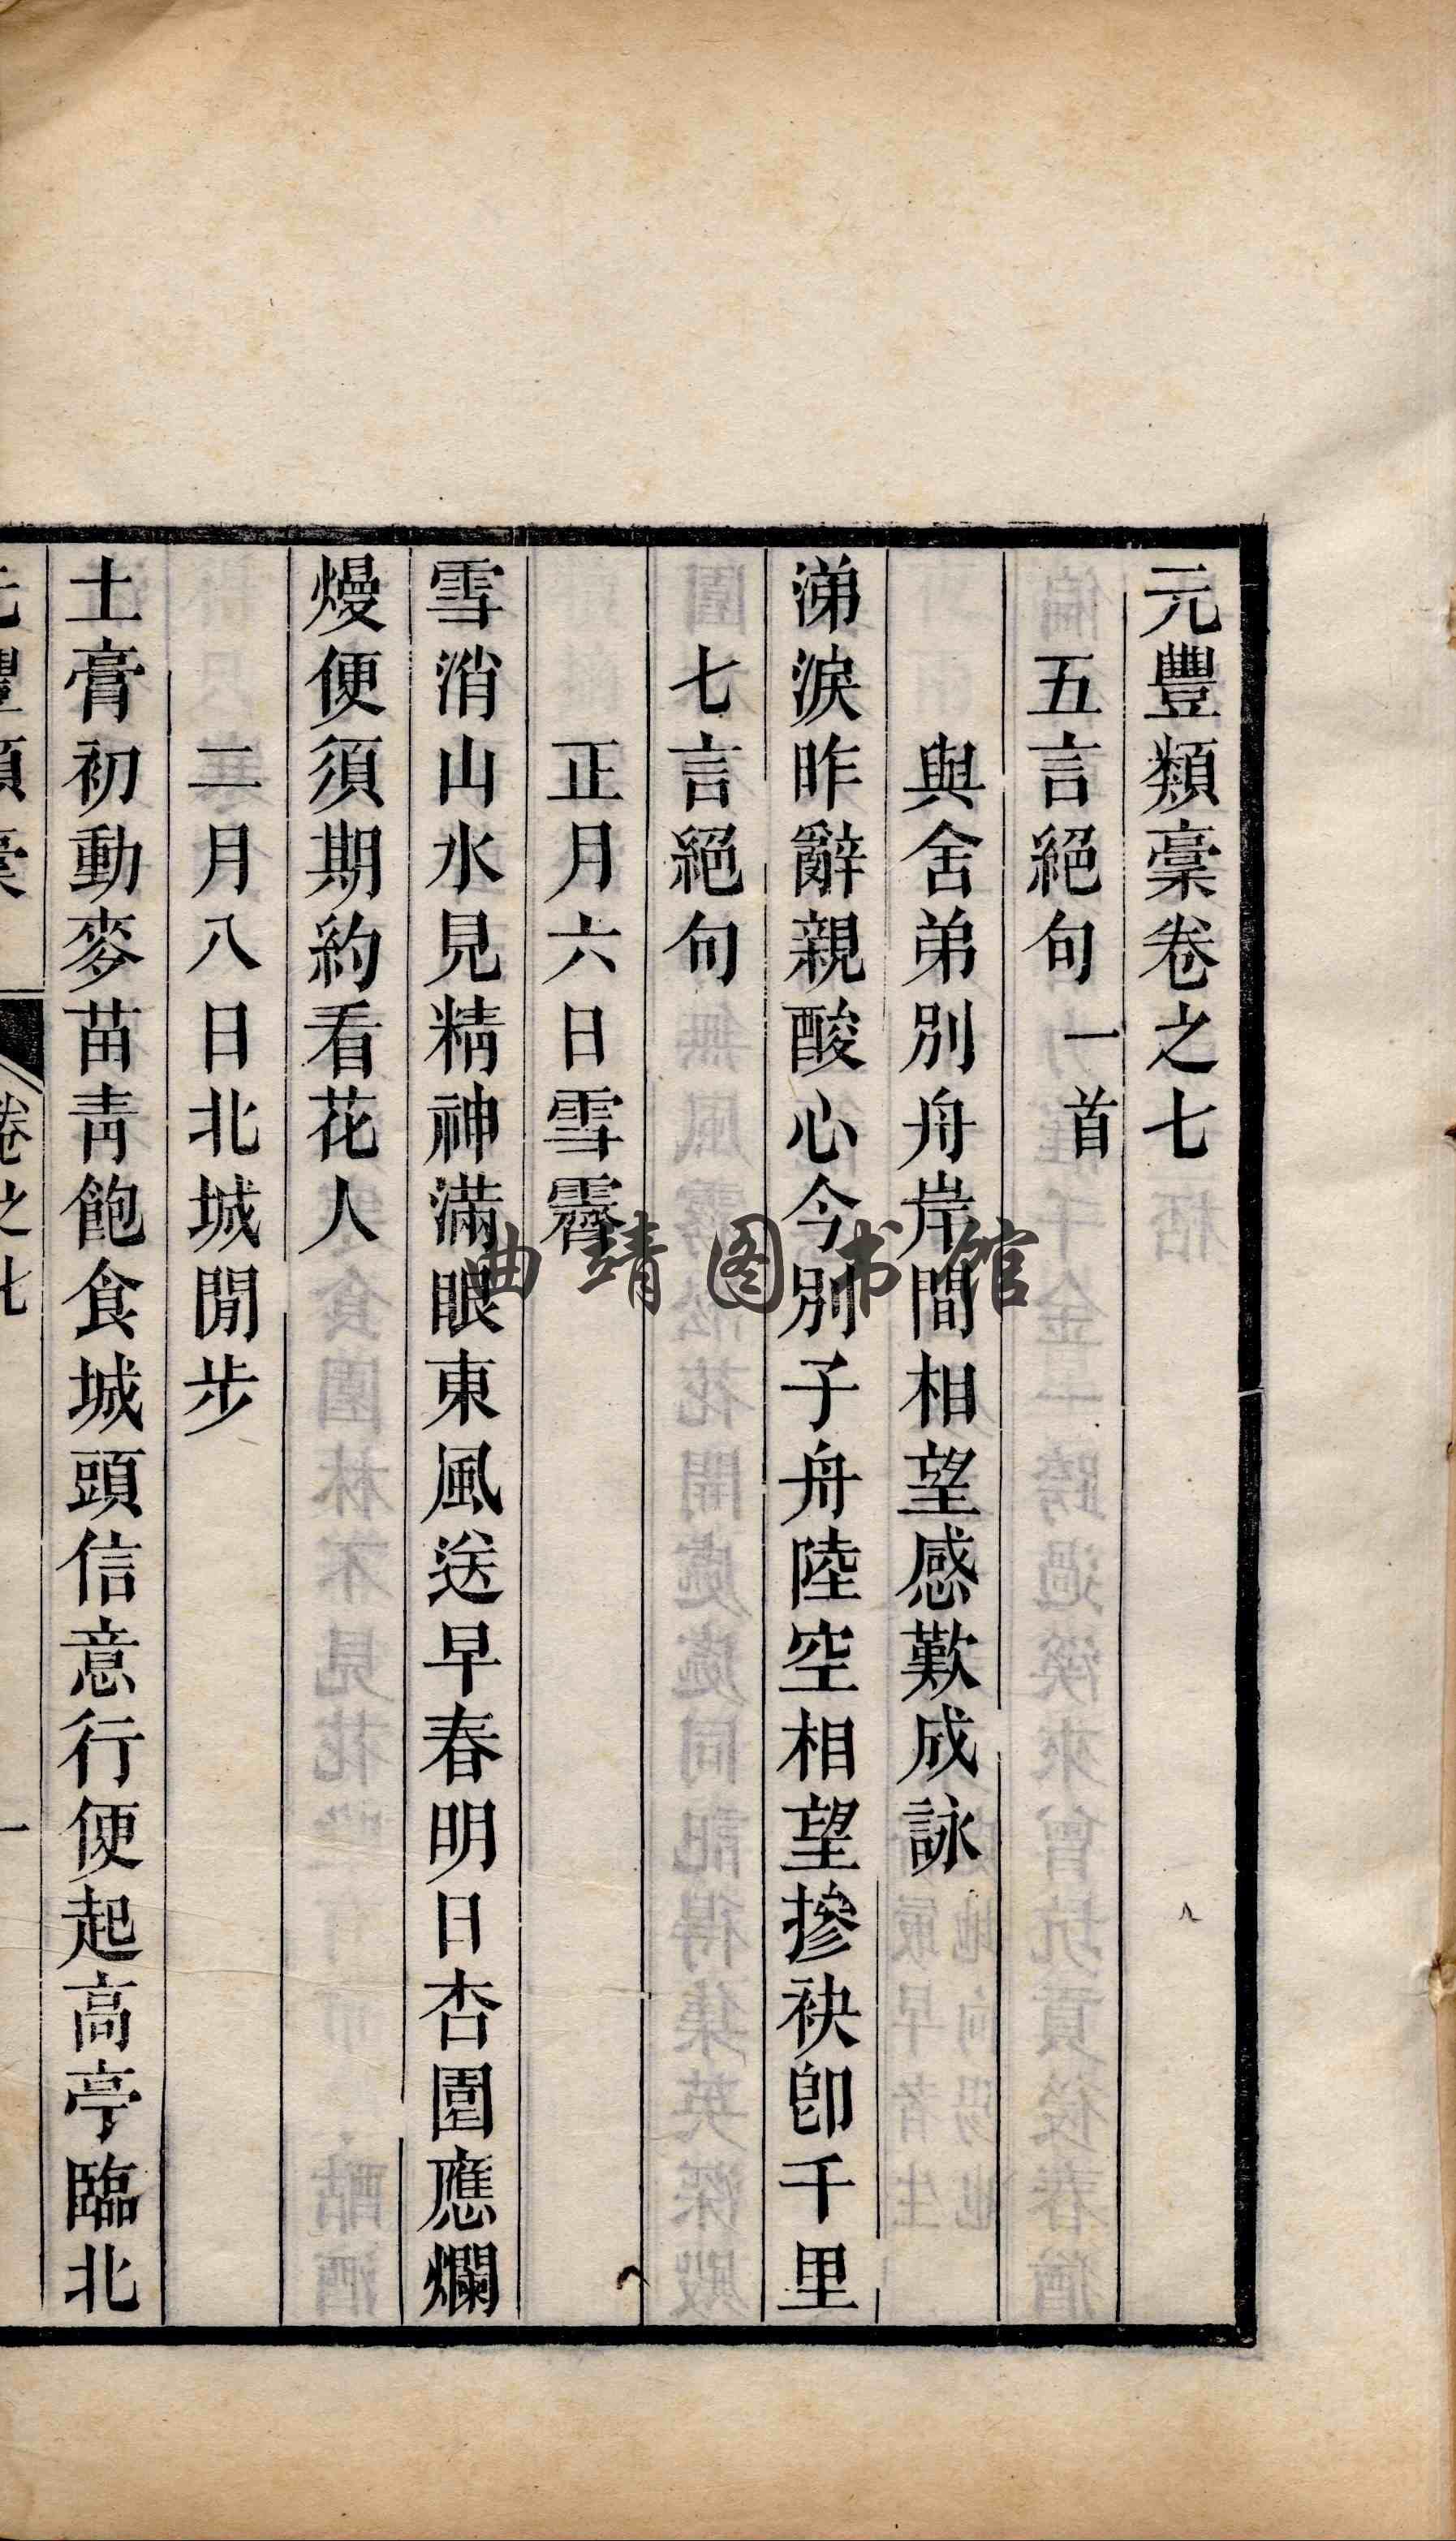 元豐類稾卷之七
五言絕句一首
與舍弟別舟岸間相望感歎成詠
涕淚昨辭親酸心今別子舟陸空相望摻袂卽千里
七言絕句
正月六日雪霽
雪消山水見精神滿眼東風送早春明日杏園應爛
熳便須期約看花人
二月八日北城閒步
土膏初動麥苗青飽食城頭信意行便起高亭臨北
元豐類稾 卷之七 一
曲靖图书馆